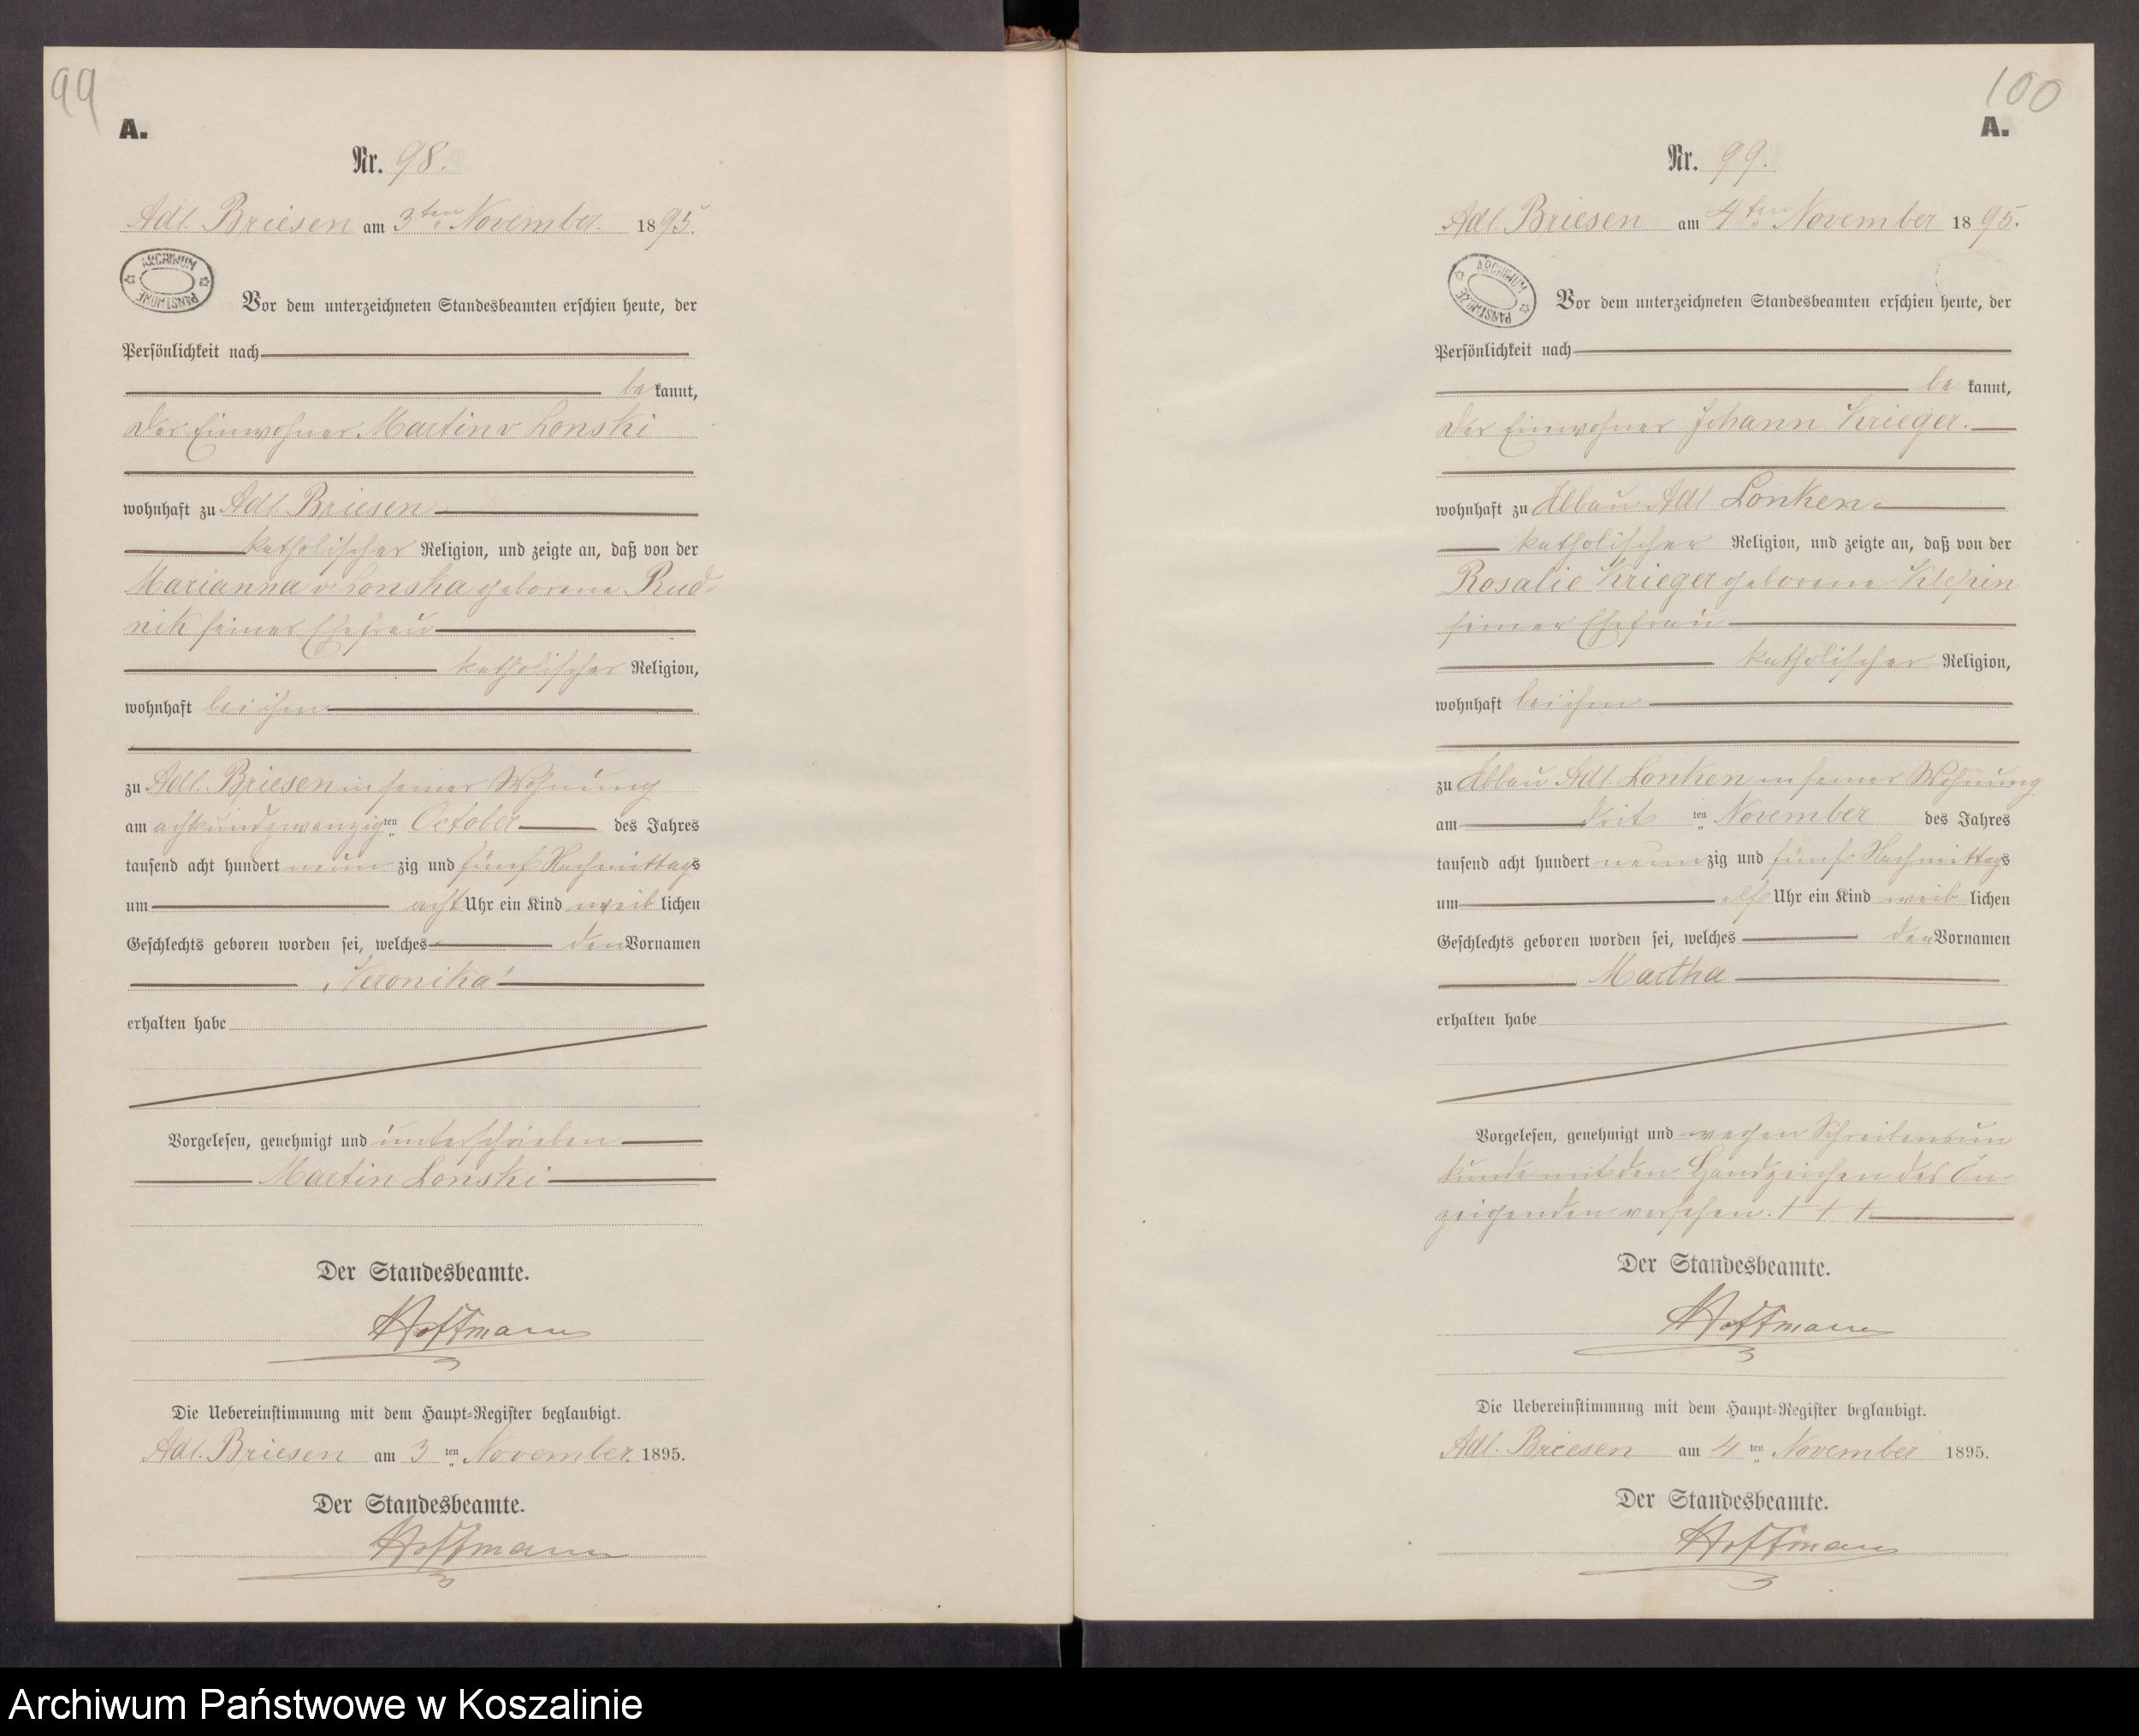 99
A.
Nr. 98.
Adl. Briesen am 3ten November. 1895.
ARCHIWUM PAŃSTWOWE
Vor dem unterzeichneten Standesbeamten erschien heute, der
Persönlichkeit nach
be kannt,
der Einwohner Martin v Lonski
wohnhaft zu Adl Briesen
katholischer Religion, und zeigte an, daß von der
Marianna v Lonska geborene Rud-
nik seiner Ehefrau
katholischer Religion,
wohnhaft bei ihm
zu Adl. Briesen in seiner Wohnung
am achtundzwanzigten October des Jahres
tausend acht hundert neun zig und fünf Nachmittags
um acht Uhr ein Kind weib lichen
Geschlechts geboren worden sei, welches den Vornamen
„Veronika“
erhalten habe
Vorgelesen, genehmigt und unterschrieben
Martin Lonski
Der Standesbeamte.
Hoffmann
Die Uebereinstimmung mit dem Haupt-Register beglaubigt.
Adl. Briesen am 3 ten November. 1895.
Der Standesbeamte.
Hoffmann
100
A.
Nr. 99.
Adl. Briesen am 4ten November 1895.
ARCHIWUM PAŃSTWOWE
Vor dem unterzeichneten Standesbeamten erschien heute, der
Persönlichkeit nach
be kannt,
der Einwohner Johann Krieger.
wohnhaft zu Abbau Adl. Lonken
katholischer Religion, und zeigte an, daß von der
Rosalie Krieger geborene Klepin
seiner Ehefrau
katholischer Religion,
wohnhaft bei ihm
zu Abbau Adl. Lonken in seiner Wohnung
am drit ten November des Jahres
tausend acht hundert neun zig und fünf Nachmittags
um elf Uhr ein Kind weib lichen
Geschlechts geboren worden sei, welches den Vornamen
Martha
erhalten habe
Vorgelesen, genehmigt und wegen Schreibensun
kunde mit den Handzeichen des An-
zeigenden versehen. + + +
Der Standesbeamte.
Hoffmann
Die Uebereinstimmung mit dem Haupt-Register beglaubigt.
Adl. Briesen am 4 ten November 1895.
Der Standesbeamte.
Hoffmann
Archiwum Państwowe w Koszalinie